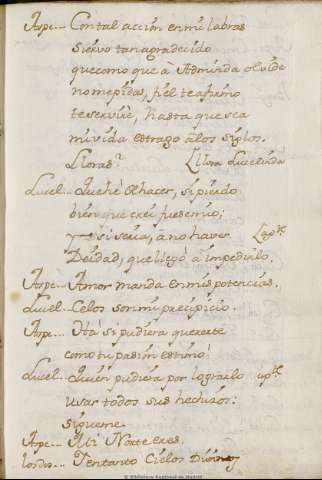 Aspe... Con tal acción en mi labras
siervo tan agradecido
que como que à Admirda olvide
no me pidas, fiel te afirmo
te serviré, hasta que sea
mi vida estrago à los siglos.
Lloras? Llora Lucelinda
Lucel.. Què hè de hacer, si pierdo
bien que creí fuese mio;
y si seria, a no haver
Deidad, que llegó à impedirlo. ap.te
Aspe... Amor manda en mis potencias.
Lucel.. Celos son mi precipicio.
Aspe... Há si pudiera quererte
como tu pasion estimó!
Lucel.. Quién pudiera por lograrlo ap.te
usar todos sus hechizos:
sigueme.
Aspe... Mi Norte eres.
los dos... Tentanto Cielos Divinos
Biblioteca Nacional de Madrid